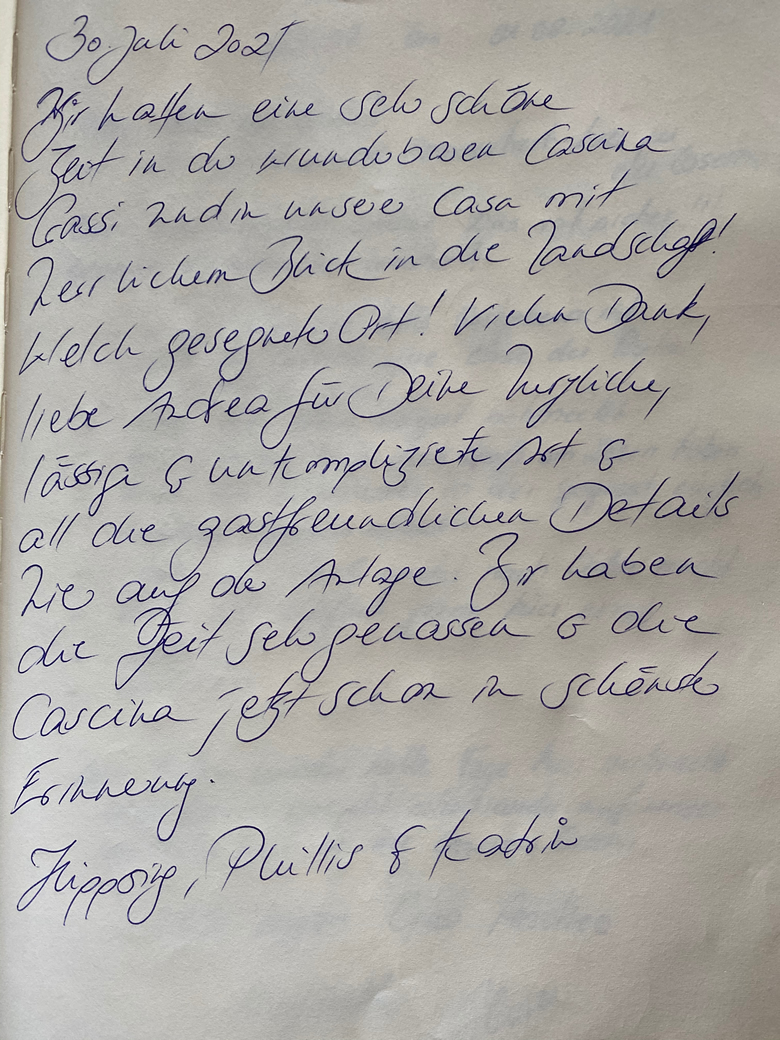 30. Juli 2021
Wir hatten eine sehr schöne
Zeit in der wunderbaren Cascina
Gassi und in unserer Casa mit
herrlichem Blick in die Landschaft!
Welch gesegneter Ort! Vielen Dank,
liebe Andrea für Deine herzliche,
lässige & unkomplizierte Art &
all die gastfreundlichen Details
hier auf der Anlage. Wir haben
die Zeit sehr genossen & die
Cascina jetzt schon in schönster
Erinnerung.
Phillis & Katrin